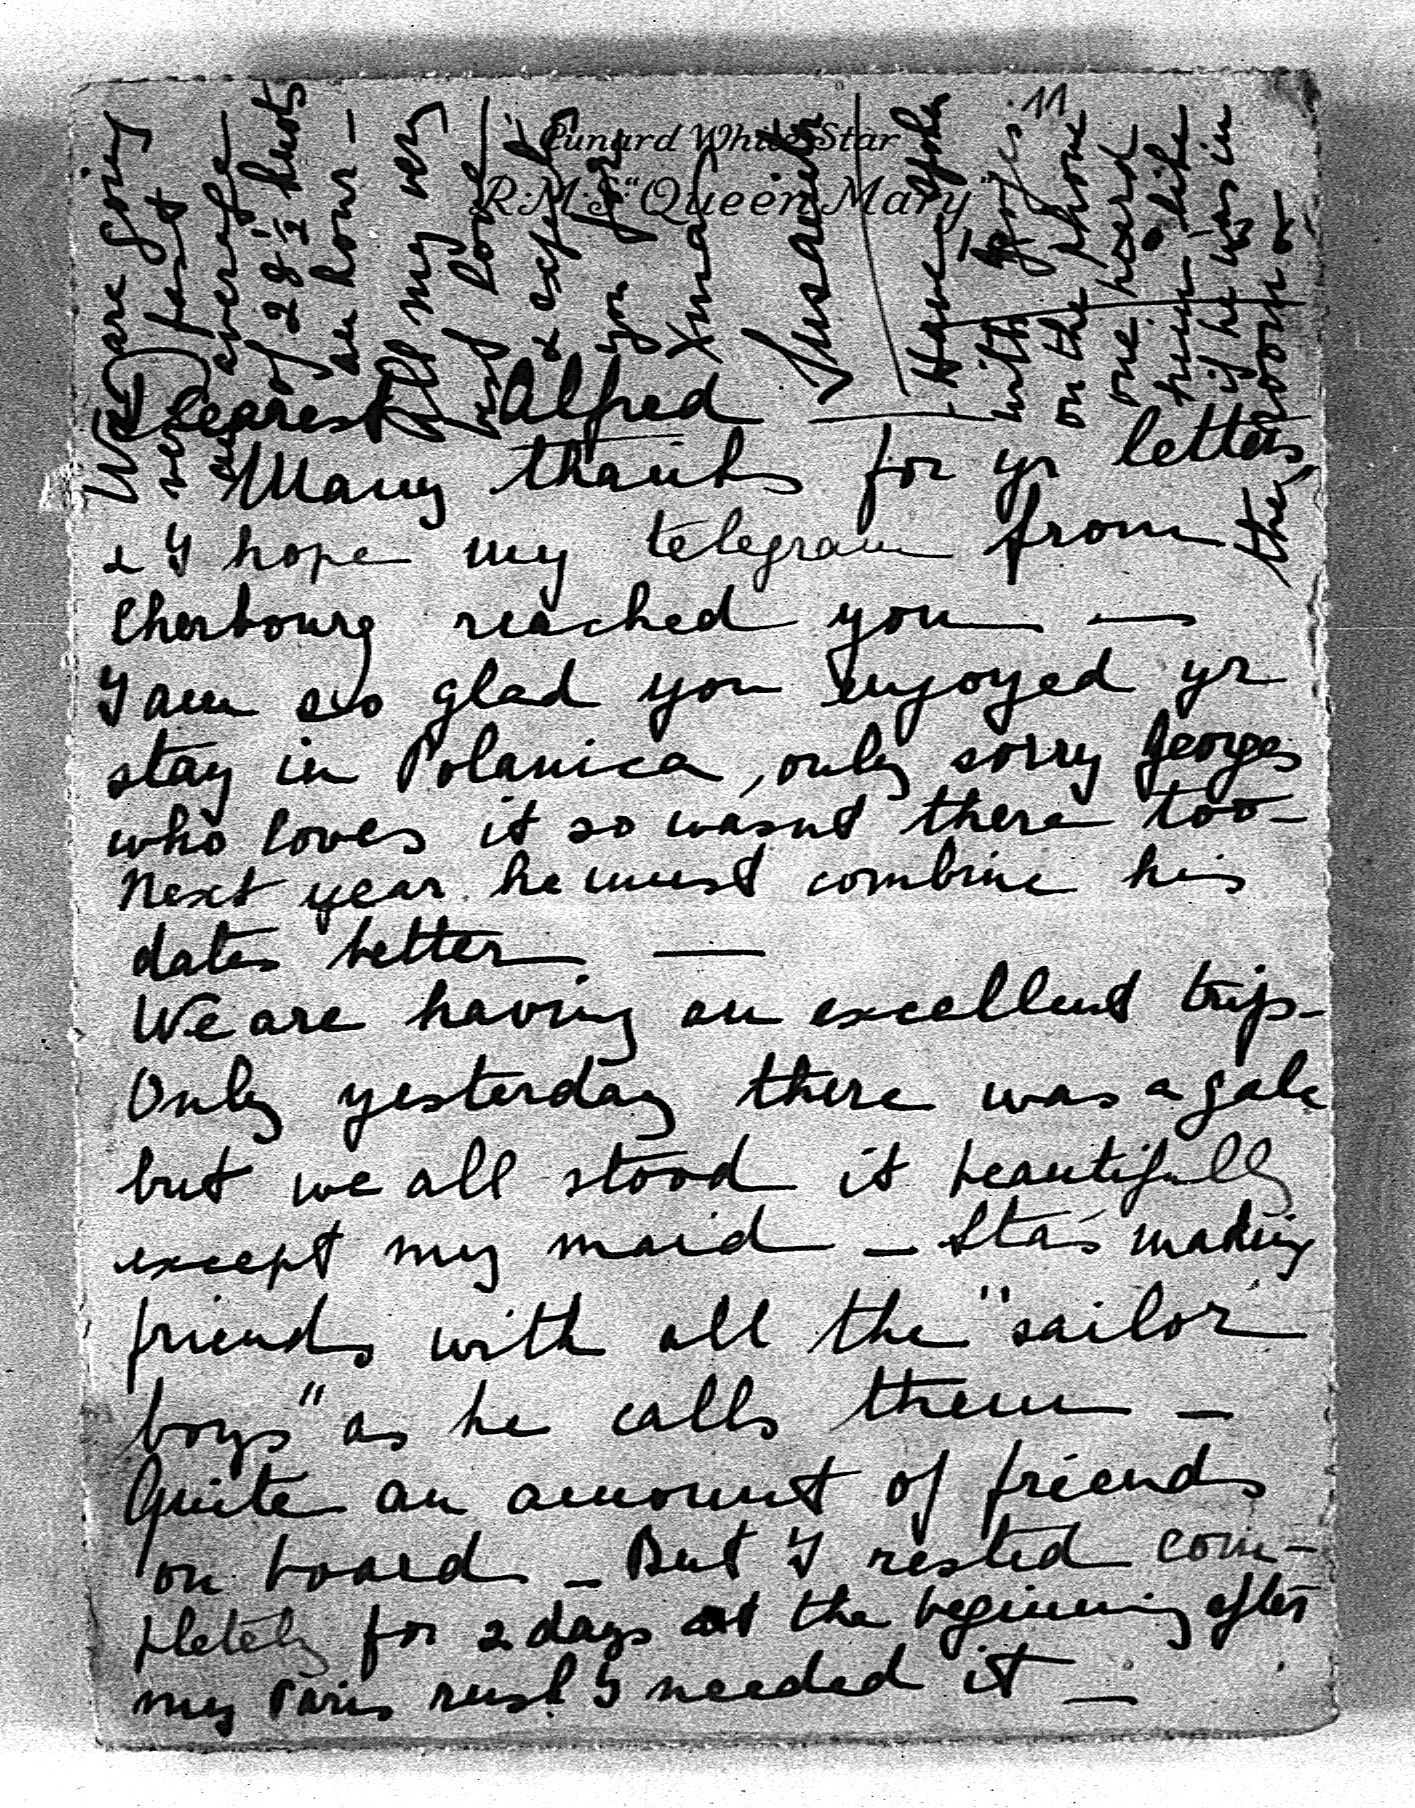 11
Cunard White Star
R.M.S. "Queen Mary"
Dearest Alfred
Many thanks for yr letters
& I hope my telegram from
Cherbourg reached you —
I am so glad you enjoyed yr
stay in Polanica, only sorry Georges
who loves it so wasnt there too —
Next year he must combine his
dates better —
We are having an excellent trip —
Only yesterday there was a gale
but we all stood it beautifully
except my maid — Stas making
friends with all the "sailor
boys" as he calls them —
Quite an amount of friends
on board — But I rested com-
pletely for 2 days at the beginning after
my Paris rush I needed it —
We are going
very fast
average
of 28 ½ knots
an hour —
All my very
best love
& expect
yr for
Xmas
Have spoken
with Georges
on the phone
one heard
him like
if he was in
the room &